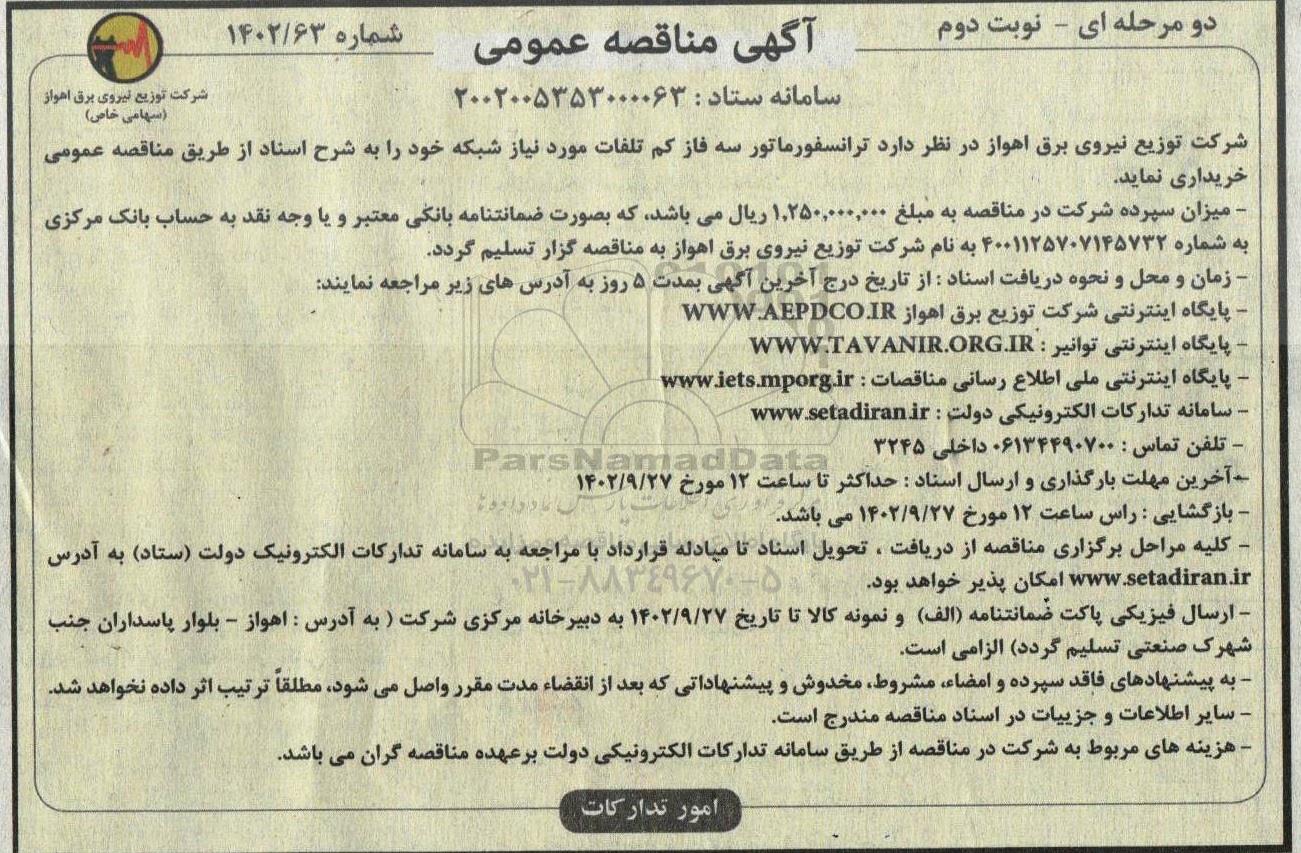 دو مرحله ای - نوبت دوم
آگهی مناقصه عمومی
شماره ۱۴۰۲/۶۳
شرکت توزیع نیروی برق اهواز
(سهامی خاص)
سامانه ستاد : ۲۰۰۲۰۰۵۳۵۳۰۰۰۰۶۳
شرکت توزیع نیروی برق اهواز در نظر دارد ترانسفورماتور سه فاز کم تلفات مورد نیاز شبکه خود را به شرح اسناد از طریق مناقصه عمومی
خریداری نماید.
- میزان سپرده شرکت در مناقصه به مبلغ ۱,۲۵۰,۰۰۰,۰۰۰ ریال می باشد، که بصورت ضمانتنامه بانکی معتبر و یا وجه نقد به حساب بانک مرکزی
به شماره ۴۰۰۱۱۲۵۷۰۷۱۴۵۷۳۲ به نام شرکت توزیع نیروی برق اهواز به مناقصه گزار تسلیم گردد.
- زمان و محل و نحوه دریافت اسناد : از تاریخ درج آخرین آگهی بمدت ۵ روز به آدرس های زیر مراجعه نمایند:
- پایگاه اینترنتی شرکت توزیع برق اهواز WWW.AEPDCO.IR
- پایگاه اینترنتی توانیر : WWW.TAVANIR.ORG.IR
- پایگاه اینترنتی ملی اطلاع رسانی مناقصات : www.iets.mporg.ir
- سامانه تدارکات الکترونیکی دولت : www.setadiran.ir
- تلفن تماس : ۰۶۱۳۴۴۹۰۷۰۰ داخلی ۳۲۴۵
ParsNamadData
-آخرین مهلت بارگذاری و ارسال اسناد : حداکثر تا ساعت ۱۲ مورخ ۱۴۰۲/۹/۲۷
- بازگشایی : راس ساعت ۱۲ مورخ ۱۴۰۲/۹/۲۷ می باشد.
- کلیه مراحل برگزاری مناقصه از دریافت ، تحویل اسناد تا مبادله قرارداد با مراجعه به سامانه تدارکات الکترونیک دولت (ستاد) به آدرس
www.setadiran.ir امکان پذیر خواهد بود.
۰۲۱-۸۸۳۴۹۶۷۰-۵
- ارسال فیزیکی پاکت ضمانتنامه (الف) و نمونه کالا تا تاریخ ۱۴۰۲/۹/۲۷ به دبیرخانه مرکزی شرکت ( به آدرس : اهواز - بلوار پاسداران جنب
شهرک صنعتی تسلیم گردد) الزامی است.
- به پیشنهادهای فاقد سپرده و امضاء، مشروط، مخدوش و پیشنهاداتی که بعد از انقضاء مدت مقرر واصل می شود، مطلقاً ترتیب اثر داده نخواهد شد.
- سایر اطلاعات و جزییات در اسناد مناقصه مندرج است.
- هزینه های مربوط به شرکت در مناقصه از طریق سامانه تدارکات الکترونیکی دولت برعهده مناقصه گران می باشد.
امور تدارکات